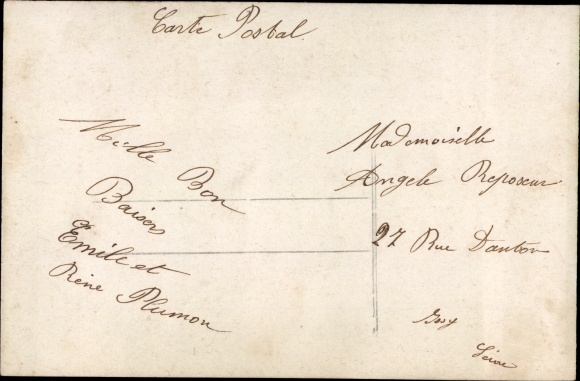 Carte Postal
Mille Bon
Baisers
Emile et
René Plumon
Mademoiselle
Angele Reposeur
27 Rue Danton
Issy
Seine